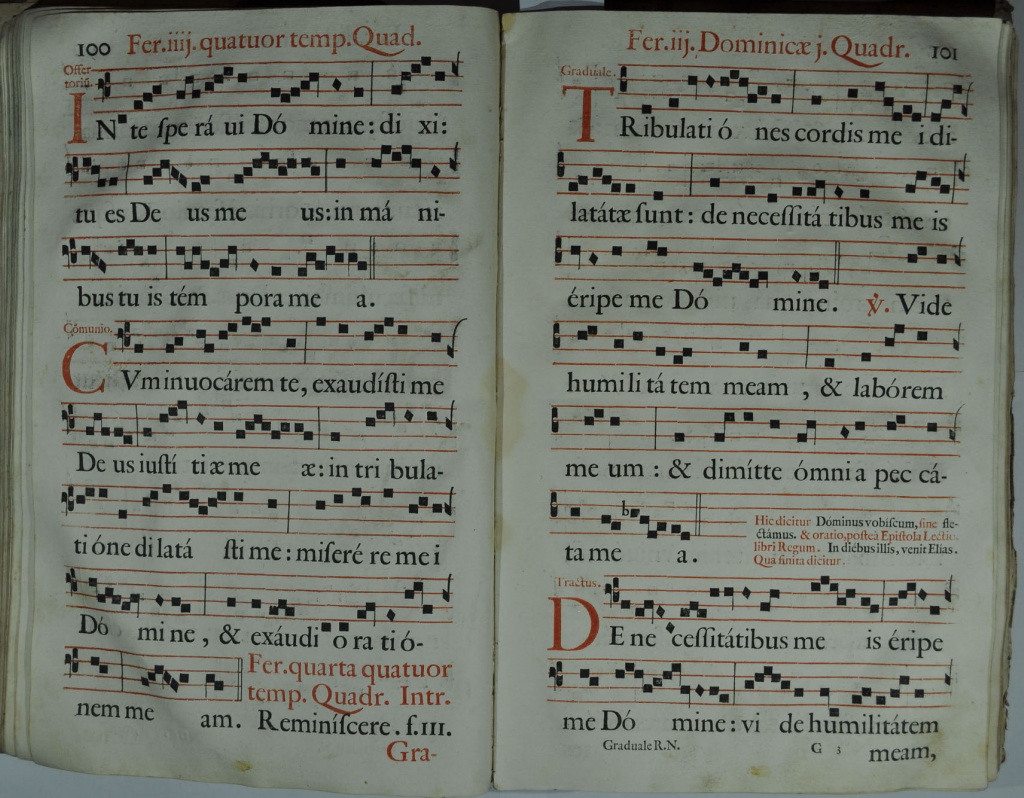 100 Fer.iiij.quatuor temp.Quad.
Offertoriũ.
IN te ſpe rá ui Dó mine: di xi:
tu es De us me us: in má ni-
bus tu is tém pora me a.
Cómunio.
CVm inuocárem te, exaudíſti me
De us iuſti ti æ me æ: in tri bula-
ti óne di latá ſti me: miſeré re me i
Dó mi ne, & exáudi o ra ti ó-
nem me am.
Fer.quarta quatuor
temp. Quadr. Intr.
Reminíſcere. f.III.
Gra-
Fer.iij.Dominicæ j. Quadr. 101
Graduale.
TRibulati ó nes cordis me i di-
latátæ ſunt: de neceſſitá tibus me is
éripe me Dó mine. ℣. Vide
humili tá tem meam, & labórem
me um: & dimítte ómni a pec cá-
ta me a.
Hic dicitur Dóminus vobiſcum, ſine fle-
ctámus. & oratio, poſtea Epiſtola Lectio.
libri Regum. In diébus illis, venit Elias.
Qua finita dicitur.
Tractus.
DE ne ceſſitátibus me is éripe
me Dó mine: vi de humilitátem
Graduale R.N. G 3 meam,